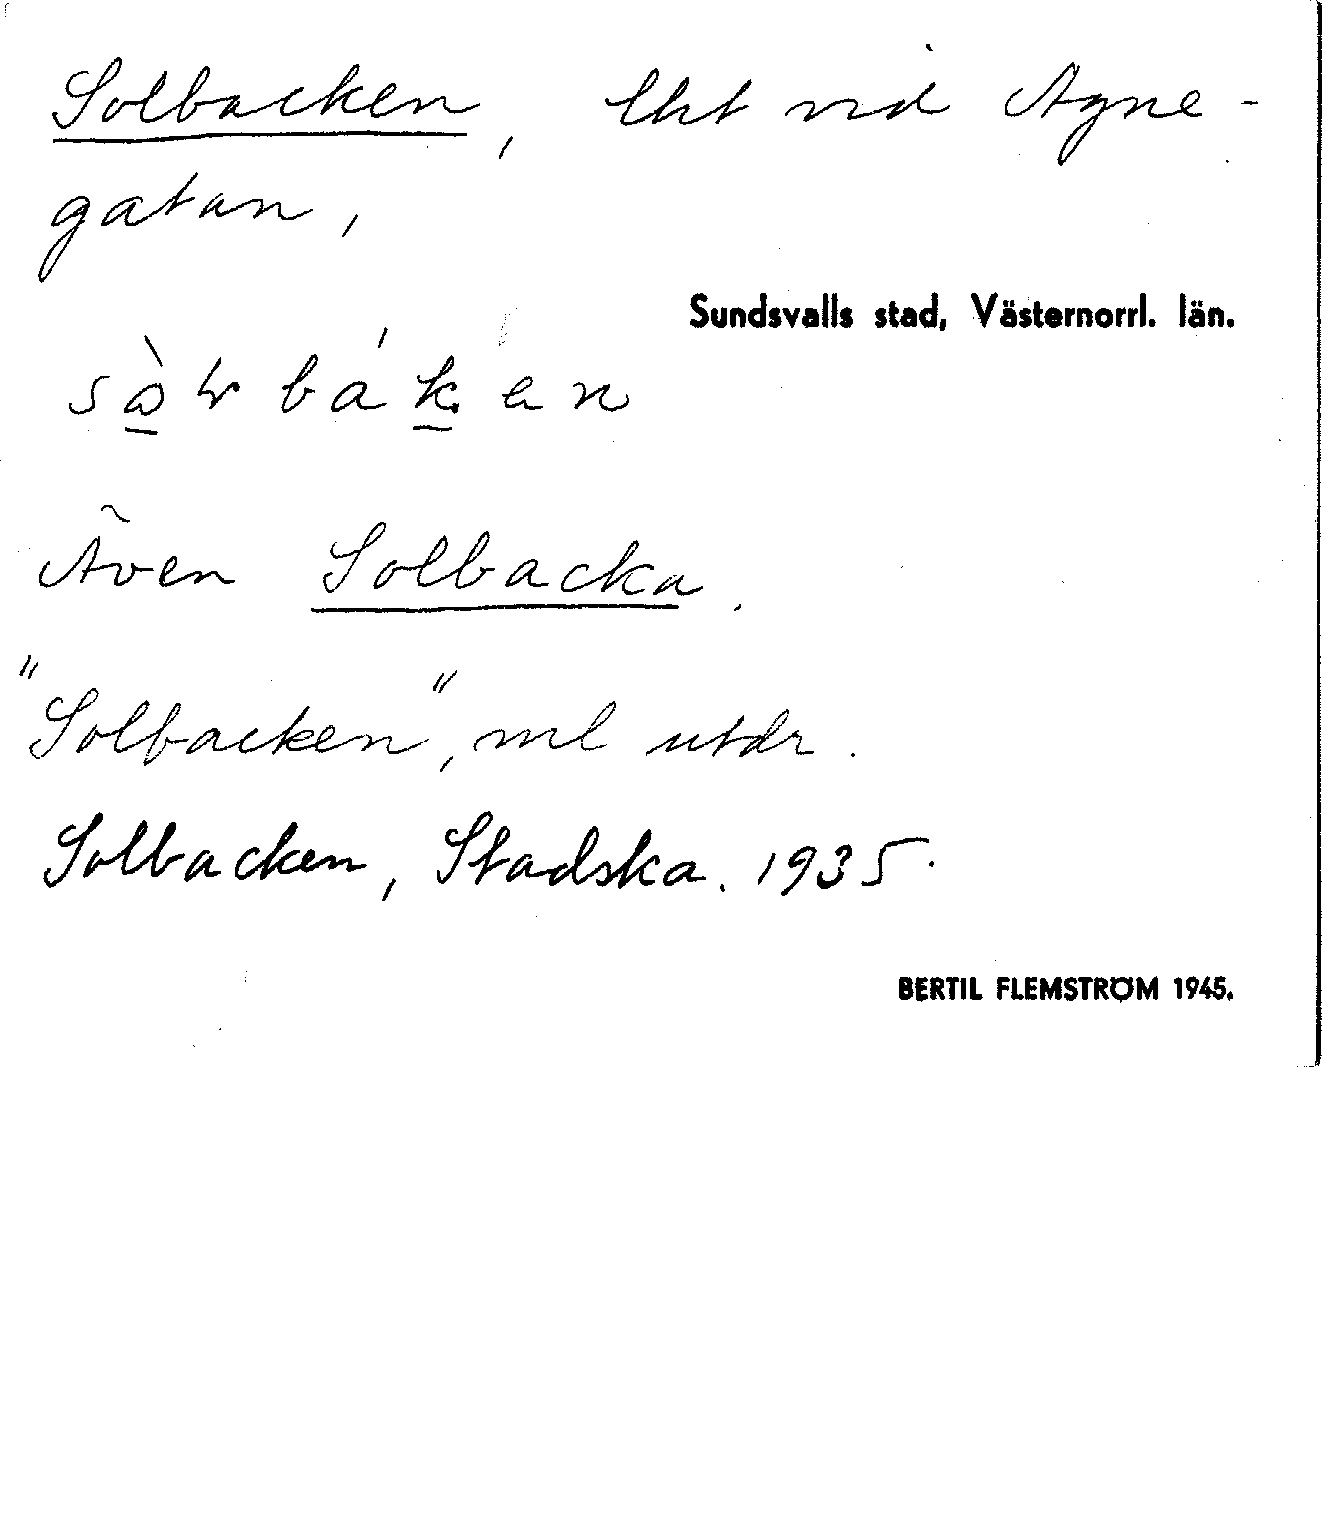 Solbacken, lht vid Agne-
gatan,
Sundsvalls stad, Västernorrl. län.
Även Solbacka.
"Solbacken", ml utdr.
Solbacken, Stadska. 1935.
BERTIL FLEMSTRÖM 1945.